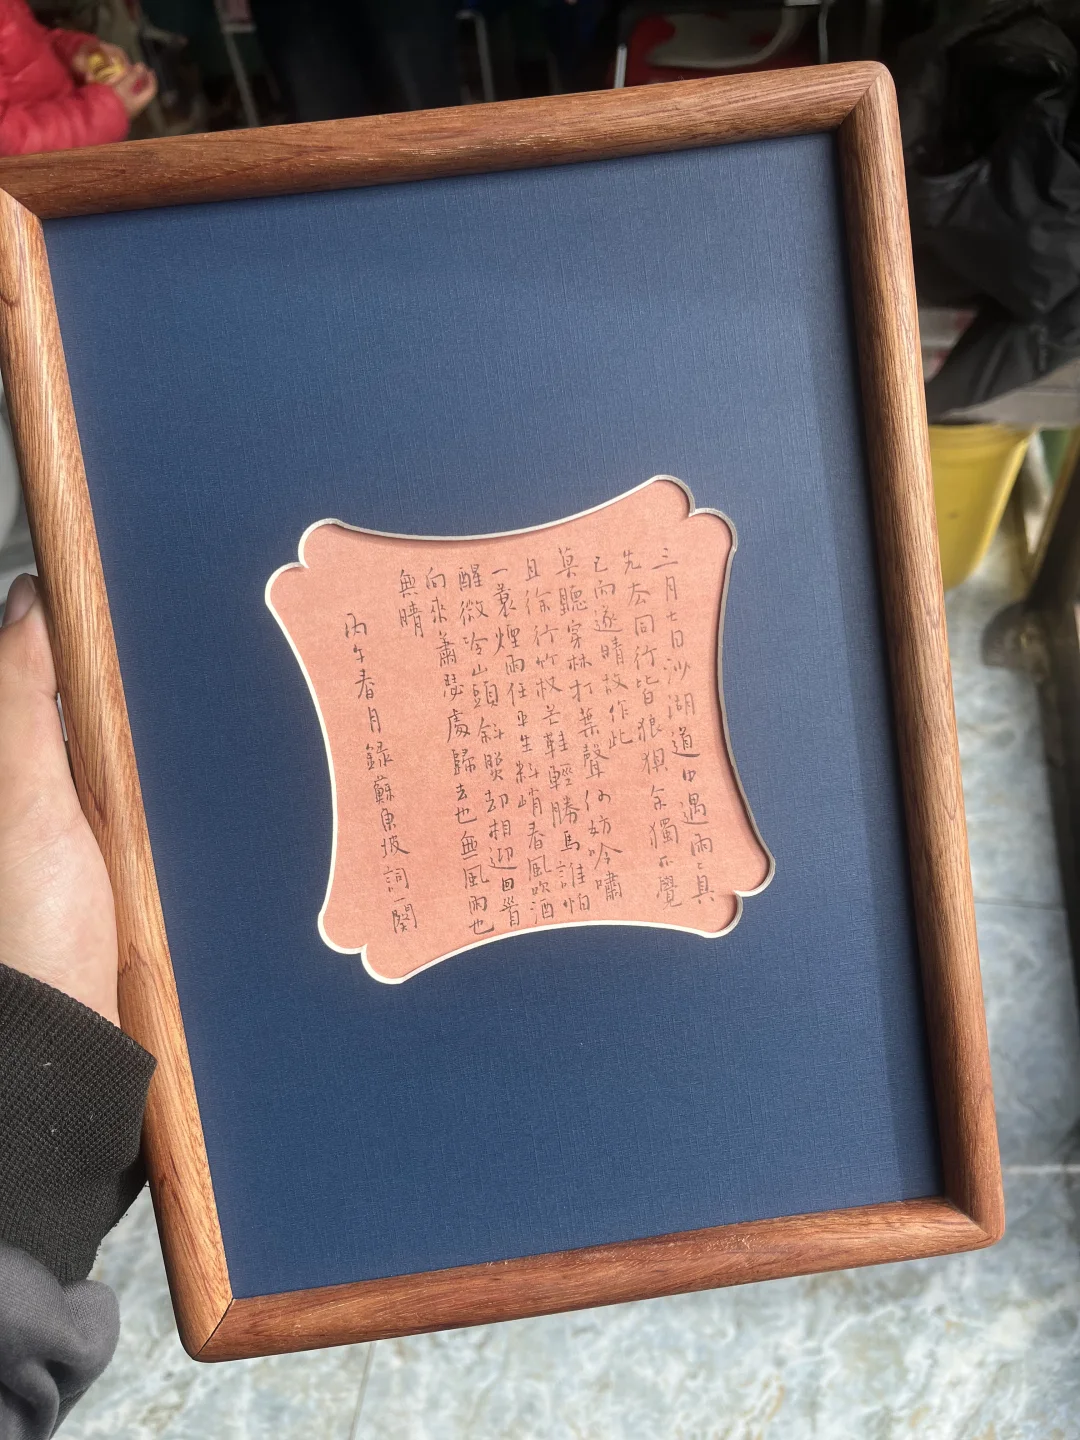 三月七日沙湖道中遇雨〻具
先去同行皆狼狽余獨不覺
已而遂晴故作此
莫聽穿林打葉聲何妨吟嘯
且徐行竹杖芒鞋輕勝馬誰怕
一蓑煙雨任平生料峭春風吹酒
醒微冷山頭斜照却相迎回首
向來蕭瑟處歸去也無風雨也
無晴
丙午春月録蘇東坡詞一闋